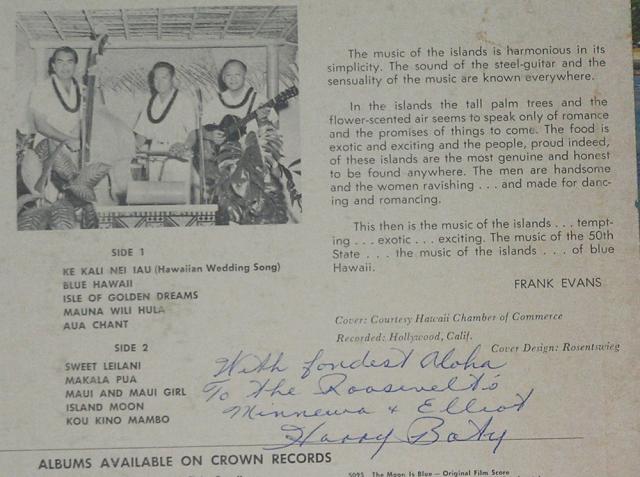 The music of the islands is harmonious in its
simplicity. The sound of the steel-guitar and the
sensuality of the music are known everywhere.
In the islands the tall palm trees and the
flower-scented air seems to speak only of romance
and the promises of things to come. The food is
exotic and exciting and the people, proud indeed,
of these islands are the most genuine and honest
to be found anywhere. The men are handsome
and the women ravishing . . . and made for danc-
ing and romancing.
This then is the music of the islands . . . tempt-
ing . . . exotic . . . exciting. The music of the 50th
State . . . the music of the islands . . . of blue
Hawaii.
FRANK EVANS
Cover: Courtesy Hawaii Chamber of Commerce
Recorded: Hollywood, Calif.
Cover Design: Rosentswieg
SIDE 1
KE KALI NEI IAU (Hawaiian Wedding Song)
BLUE HAWAII
ISLE OF GOLDEN DREAMS
MAUNA WILI HULA
AUA CHANT
SIDE 2
SWEET LEILANI
MAKALA PUA
MAUI AND MAUI GIRL
ISLAND MOON
KOU KINO MAMBO
With fondest Aloha
To the Roosevelt's
Minnewa & Elliot
Harry Baty
ALBUMS AVAILABLE ON CROWN RECORDS
5095 The Moon Is Blue — Original Film Score